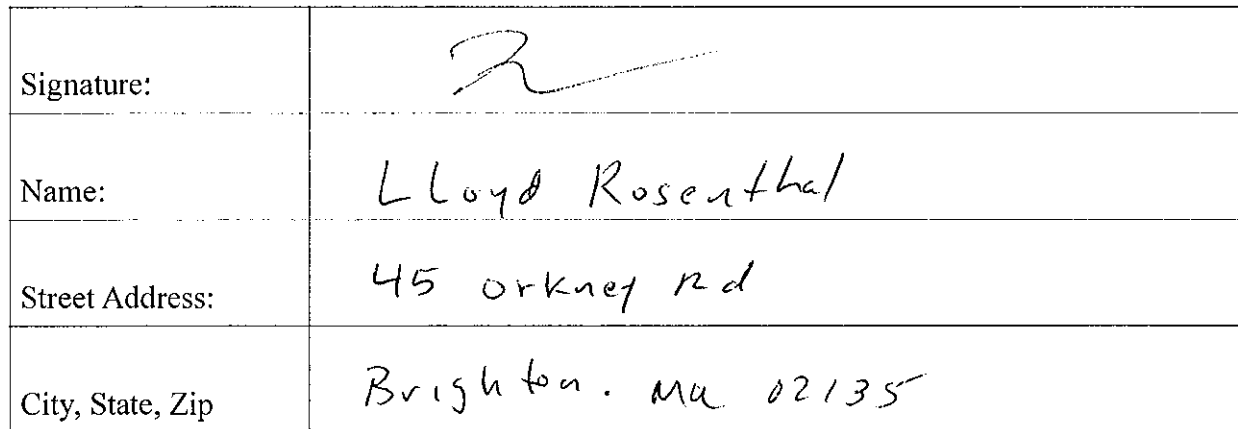 Signature:
Name: LLoyd Rosenthal
Street Address: 45 orkney Rd
City, State, Zip Brighton. Ma 02135